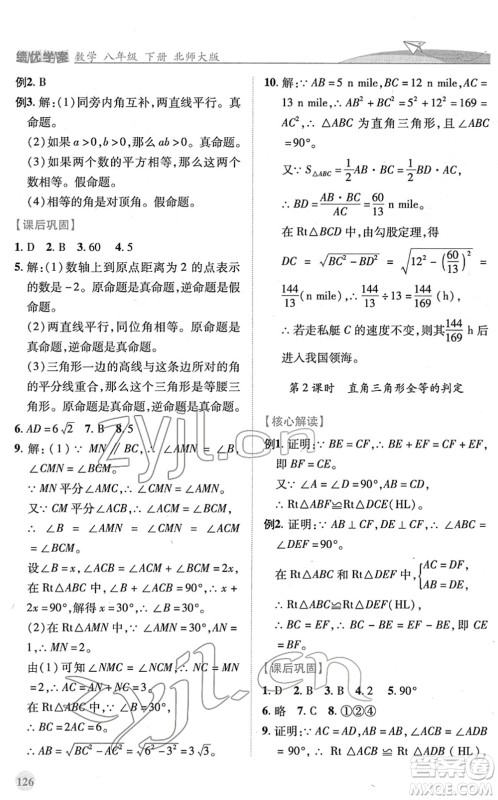 绩优学案 数学 八年级 下册 北师大版
例2. B
例3. 解：(1)同旁内角互补，两直线平行。真
命题。
(2)如果 a＞0，b＞0，那么 ab＞0。真命题。
(3)如果两个数的平方相等，那么这两个数
相等。假命题。
(4)相等的角是对顶角。假命题。
【课后巩固】
1. D 2. B 3. 60 4. 5
5. 解：(1)数轴上到原点距离为 2 的点表示
的数是－2。原命题是真命题，逆命题是假命题。
(2)两直线平行，同位角相等。原命题是真
命题，逆命题是真命题。
(3)三角形一边的高线与该边所对的角的
平分线重合，那么这个三角形是等腰三角
形。原命题是真命题，逆命题是真命题。
6. AD＝6√2 7. B 8. 15
9. 解：(1)∵ MN∥BC，∴ ∠AMN＝∠B，
∠CMN＝∠BCM。
∵ MN 平分∠AMC，∴ ∠AMN＝∠CMN。
又∵ CM 平分∠ACB，∴ ∠ACM＝∠BCM。
∴ ∠B＝∠AMN＝∠CMN＝∠ACM
＝∠BCM。
设∠B＝x，∴ ∠ACB＝∠ACM＋∠BCM＝2x，
∴ 在 Rt△ABC 中，∠A＝90°，∴ x＋
2x＝90°，解得 x＝30°，∴ ∠B＝30°。
(2)在 Rt△AMN 中，∠AMN＝30°，∴ MN
＝2AN＝2。
由(1)可知∠NMC＝∠NCM，∴ CN＝MN
＝2，∴ AC＝3。在 Rt△ABC 中，∠B＝30°，
∴ BC＝2AC＝6。
∴ AB＝√BC²－AC²＝√6²－3²＝3√3。
10. 解：∵ AB＝5 n mile，BC＝12 n mile，AC＝
13 n mile，∴ AB²＋BC²＝5²＋12²＝169＝
AC²，∴ △ABC 为直角三角形，且∠ABC
＝90°。
又∵ S△ABC＝1/2 AB·BC＝1/2 AC·BD，
∴ BD＝AB·BC/AC＝60/13(n mile)。
在 Rt△BCD 中，由勾股定理，得
DC＝√BC²－BD²＝√12²－(60/13)²＝
144/13(n mile)，∴ 144/13÷12＝144/169(h)，
∴ 若走私艇 C 的速度不变，则最早 144/169 h
后进入我国领海。
第 2 课时 直角三角形全等的判定
【核心解读】
例1. 证明：∵ BE＝CF，∴ BF＝CE。又∵
∠A＝∠D＝90°，AB＝CD，
∴ Rt△ABF≌Rt△DCE(HL)。
例2. 证明：∵ AB⊥CF，DE⊥CF，∴ ∠ABC
＝∠DEF＝90°。
在 Rt△ABC 和 Rt△DEF 中，{AC＝DF，
AB＝DE，
∴ Rt△ABC≌Rt△DEF(HL)，
∴ BC＝EF，∴ BC－BE＝EF－BE，即
CE＝BF。
【课后巩固】
1. D 2. B 3. B 4. 2 5. 90°
6. 略 7. C 8. ①②④
9. 证明：∵ ∠ACB＝∠CFA＝90°，AC＝AF，AB＝
AD，∴ Rt△ACB≌Rt△AFD(HL)，
126